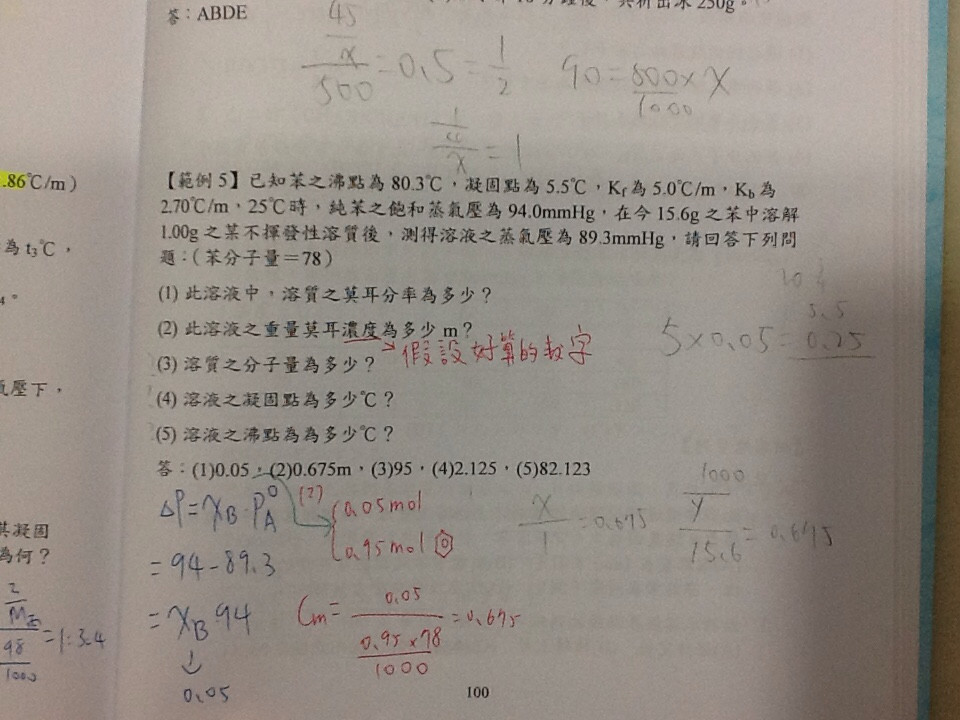 答：ABDE
後，共析出冰 250g。
45
x
500
=0.5=
1
2
90=
800
1000
x X
x
=1
.86℃/m）
為 t₃℃，
氣壓下，
其凝固
為何？
2
98
1000
=1:3.4
【範例 5】已知苯之沸點為 80.3℃，凝固點為 5.5℃，Kf 為 5.0℃/m，Kb 為
2.70℃/m，25℃時，純苯之飽和蒸氣壓為 94.0mmHg，在今 15.6g 之苯中溶解
1.00g 之某不揮發性溶質後，測得溶液之蒸氣壓為 89.3mmHg，請回答下列問
題：（苯分子量＝78）
(1) 此溶液中，溶質之莫耳分率為多少？
(2) 此溶液之重量莫耳濃度為多少 m？
→假設好算的數字
5×0.05=0.25
5.5
(3) 溶質之分子量為多少？
(4) 溶液之凝固點為多少℃？
(5) 溶液之沸點為為多少℃？
答：(1)0.05，(2)0.675m，(3)95，(4)2.125，(5)82.123
ΔP=XB·P°A
=94-89.3
=XB·94
↓
0.05
(2)
0.05mol
0.95mol
Cm=
0.05
0.95×78
1000
=0.675
X
1
=0.675
1000
Y
15.6
=0.675
100